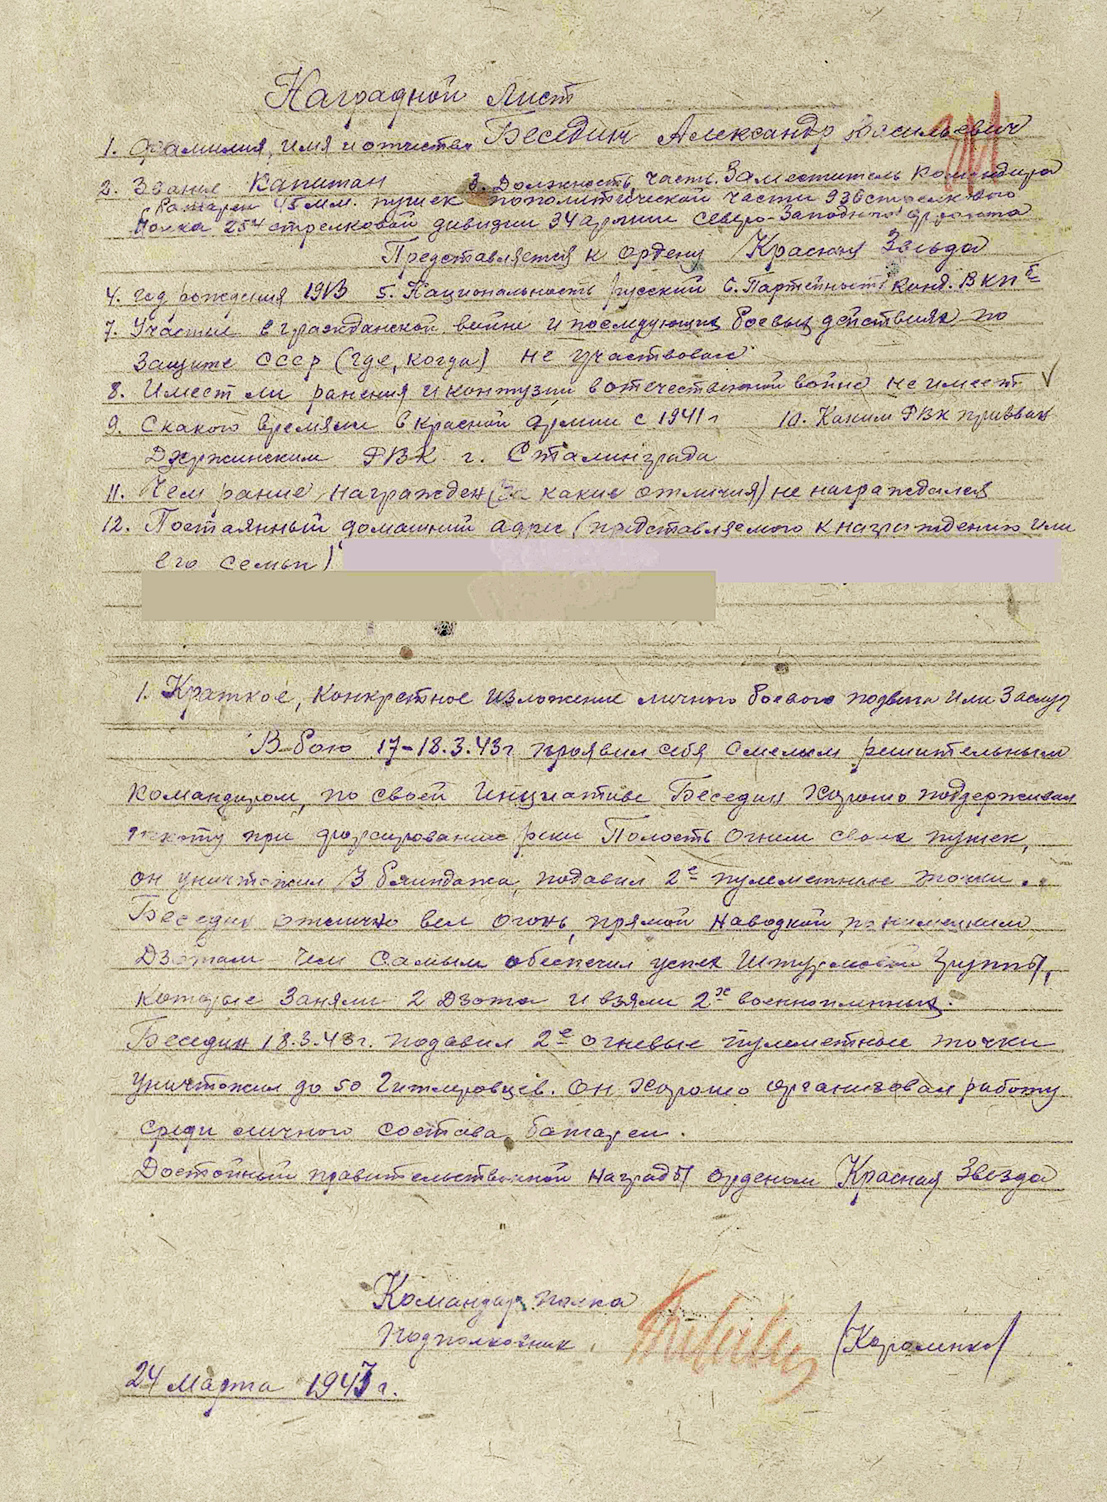 Наградной лист
1. Фамилия, имя и отчество Беседин Александр Васильевич
2. Звание Капитан 3. Должность, часть. Заместитель Командира
Батареи 45 мм. пушек пополитической части 936 стрелкового
Полка 254 стрелковой дивизии 34 армии Северо-Западного фронта
Представляется к ордену Красная Звезда
4. год рождения 1913 5. Национальность русский 6. Партейность канд. ВКПб
7. Участие в гражданской войне и последующих боевых действиях по
Защите СССР (где, когда) не участвовал
8. Имеет ли ранения и контузии в отечественной войне не имеет
9. С какого времени в Красной Армии с 1941 г 10. Каким РВК призван
Держинским РВК г. Сталинграда
11. Чем ранее награжден (за какие отличия) не награждался
12. Постаянный домашний адрес (представляемого к награждению или
его семьи)
1. Краткое, конкретное изложение личного боевого подвига или заслуг
В бою 17-18.3.43 г проявил себя смелым решительным
командиром, по своей инциативе Беседин хорошо поддерживал
пехоту при форсирование реки Полость огнем своих пушек,
он уничтожил 3 блиндажа, подавил 2е пулеметные точки.
Беседин отлично вел огонь, прямой наводкой по немецким
Дзотам чем самым обеспечил успех Штурмовой группы,
которые заняли 2 Дзота и взяли 2х военнопленных.
Беседин 18.3.43 г. подавил 2е огневые пулеметные точки
уничтожил до 50 Гитлеровцев. Он хорошо организовал работу
среди личного состава батареи.
Достойный правительственной награды орденом Красная Звезда
Командир полка
Подполковник (Короленко)
24 марта 1943 г.